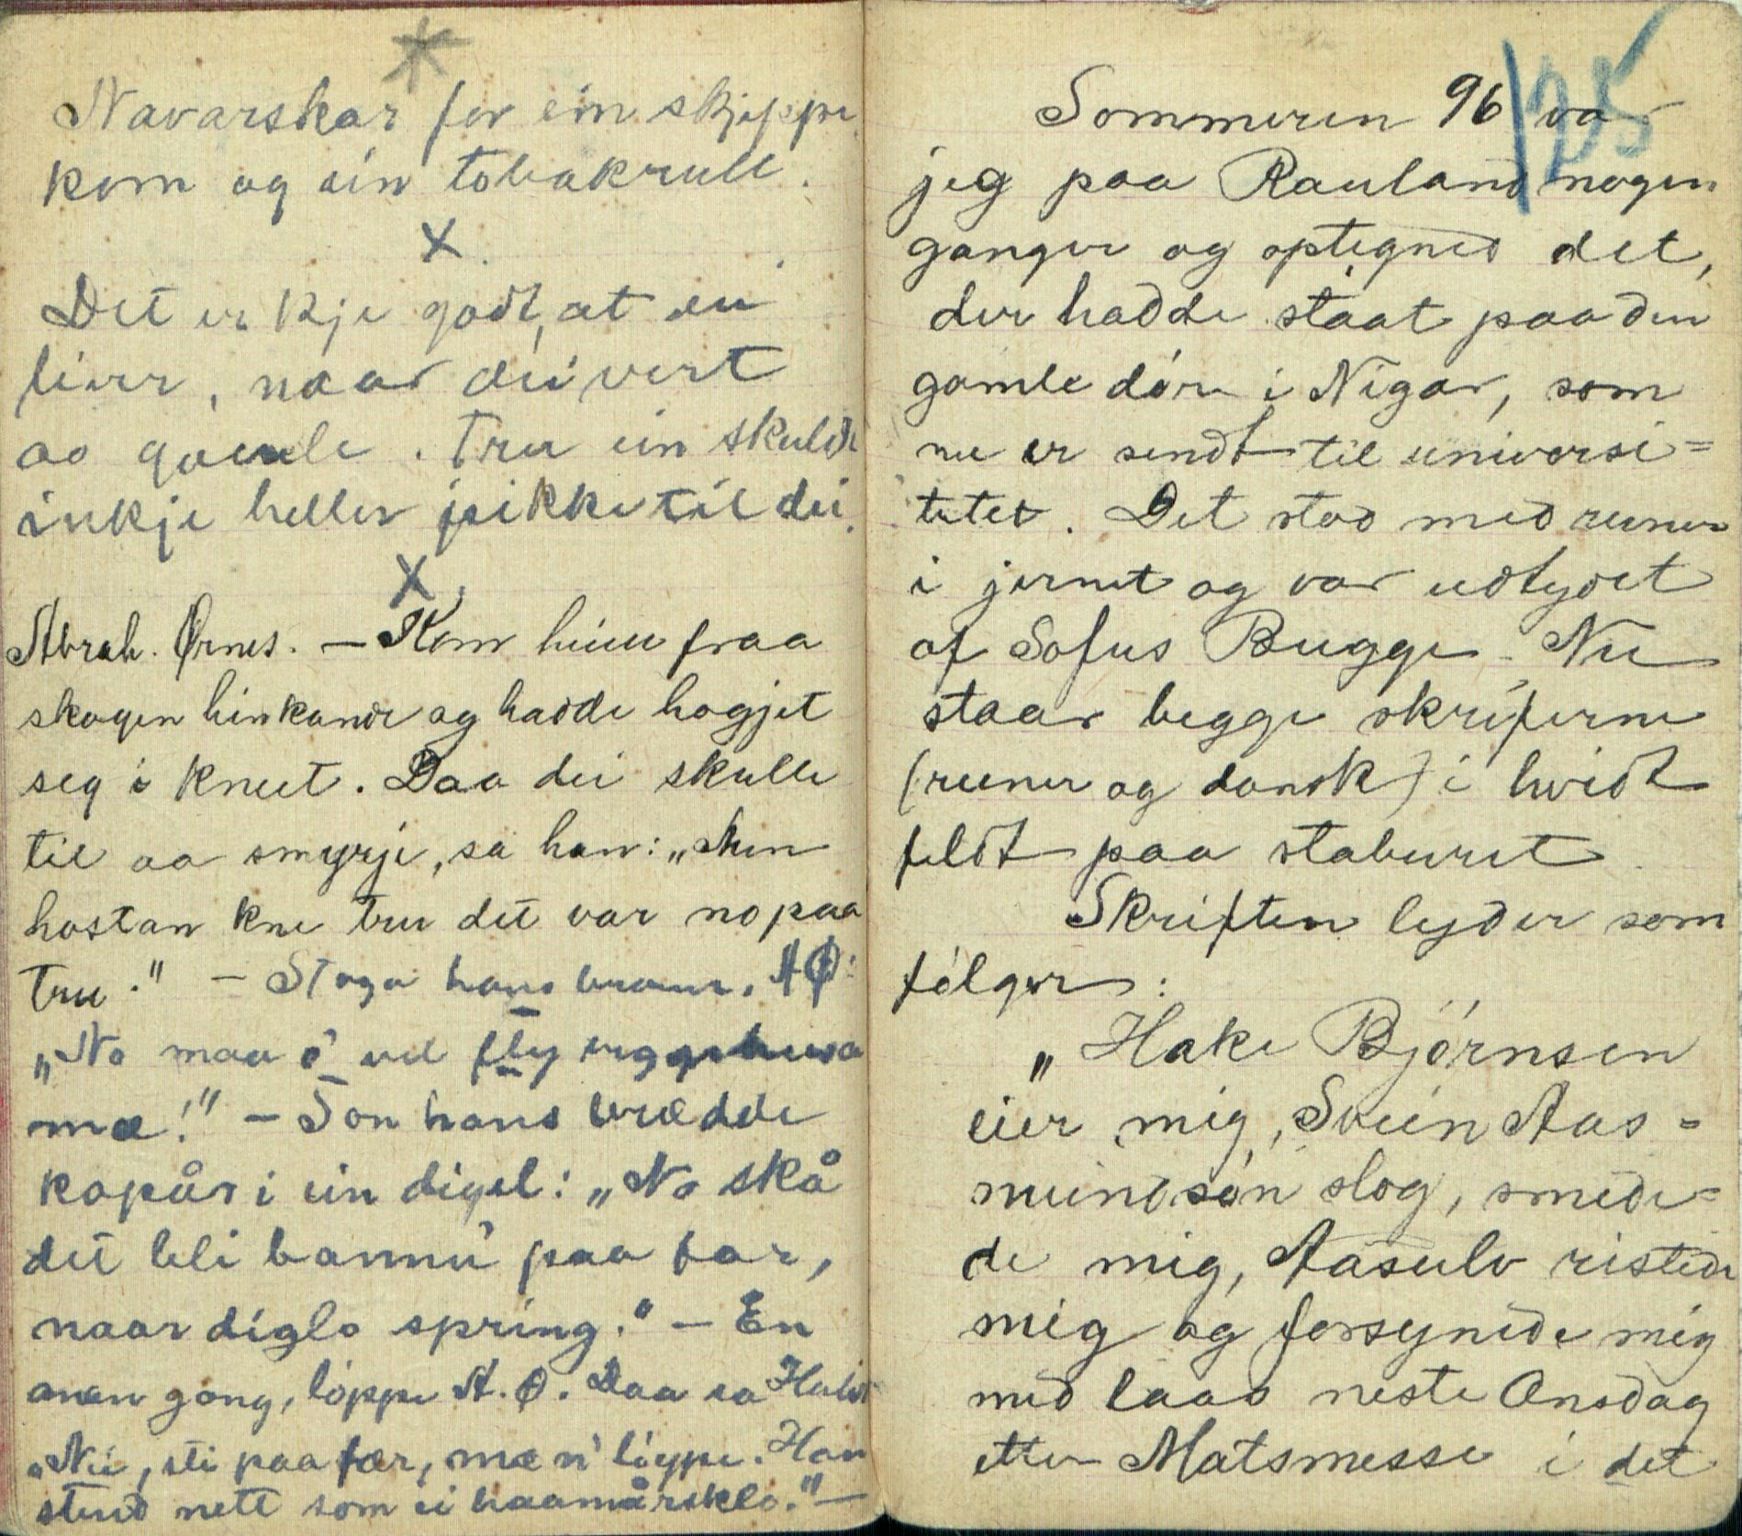 Navarskar for ein skjeppe
korn og ein tobakrull.
x
Det er kje godt, at ein
liver, naar dei vert
so gamle. Tru ein skulde
inkje heller pikke til dei.
x
Abrah. Ørnes. – Kom heim fraa
skogen hinkande og hadde hogjet
seg i kneet. Daa dei skulle
til aa smyrje, sa han: „Men
hostan kne tru det var no paa
tru." – Stoga hans brann. AØ:
„No maa o' vel fly
mæ!" – Son hans brædde
kopår i ein digel: „No skå
det bli bannu' paa far,
naar diglo spring." – En
anen gong, löppe A. Ø. Daa sa
„Nei, sti paa fær, mæ n' löype. Han
stend nett som ei haamårsklo." –
125
Sommeren 96 var
jeg paa Rauland nogen
ganger og optegned det,
der hadde staat paa den
gamle dör i Nigar, som
nu er sendt til universi=
tetet. Det stod med runer
i jernet og var udtydet
af Sofus Bugge. Nu
staar begge skrifterne
(runer og dansk) i hvidt
feldt paa staburet.
Skriften lyder som
fölger:
„Hake Björnsen
eier mig, Svein Aas=
mundsön slog, smede=
de mig, Aasulv ristede
mig og forsynede mig
med laas neste Onsdag
etter Matsmesse i det